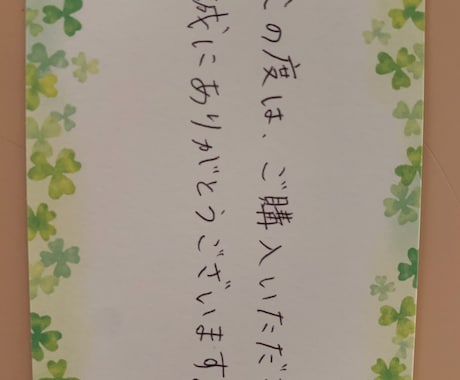 の度は、ご購入いただ
誠にありがとうございます。